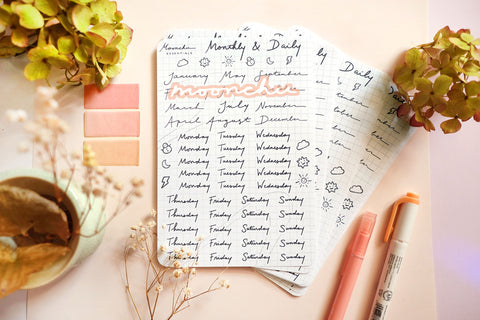 Mooncher
ESSENTIALS
Monthly & Daily
January May September
mooncher
March July November
April August December
Monday Tuesday Wednesday
Monday Tuesday Wednesday
Monday Tuesday Wednesday
Monday Tuesday Wednesday
Monday Tuesday Wednesday
Thursday Friday Saturday Sunday
Thursday Friday Saturday Sunday
Thursday Friday Saturday Sunday
Thursday Friday Saturday Sunday
Thursday Friday Saturday Sunday
Daily